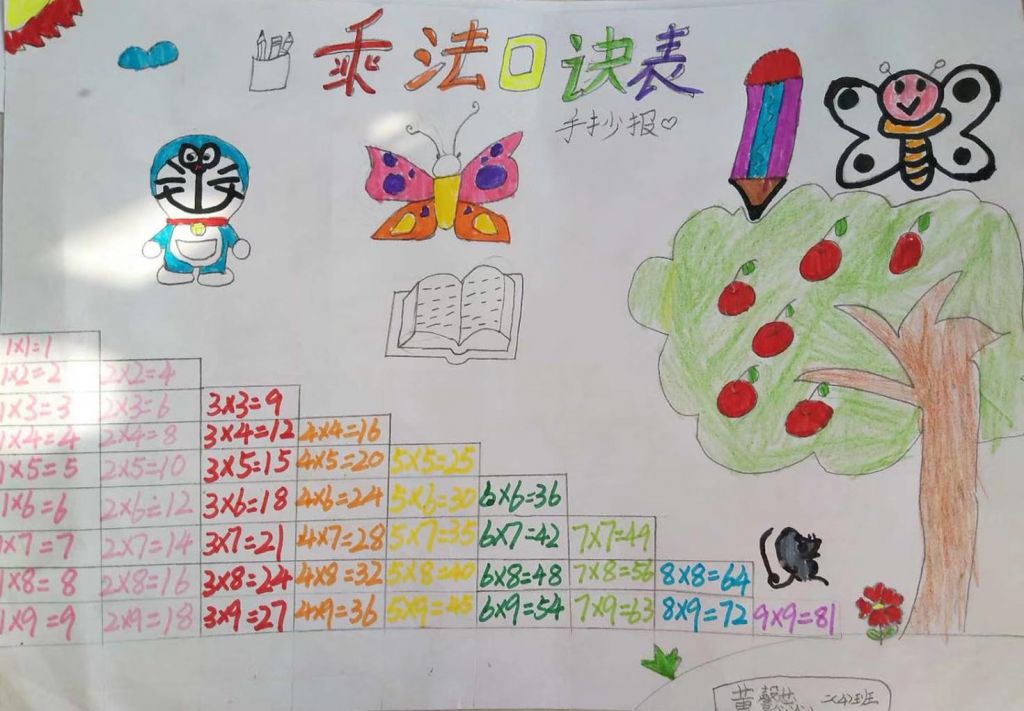 乘法口诀表
手抄报♡
1×1=1
1×2=2 2×2=4
1×3=3 2×3=6 3×3=9
1×4=4 2×4=8 3×4=12 4×4=16
1×5=5 2×5=10 3×5=15 4×5=20 5×5=25
1×6=6 2×6=12 3×6=18 4×6=24 5×6=30 6×6=36
1×7=7 2×7=14 3×7=21 4×7=28 5×7=35 6×7=42 7×7=49
1×8=8 2×8=16 3×8=24 4×8=32 5×8=40 6×8=48 7×8=56 8×8=64
1×9=9 2×9=18 3×9=27 4×9=36 5×9=45 6×9=54 7×9=63 8×9=72 9×9=81